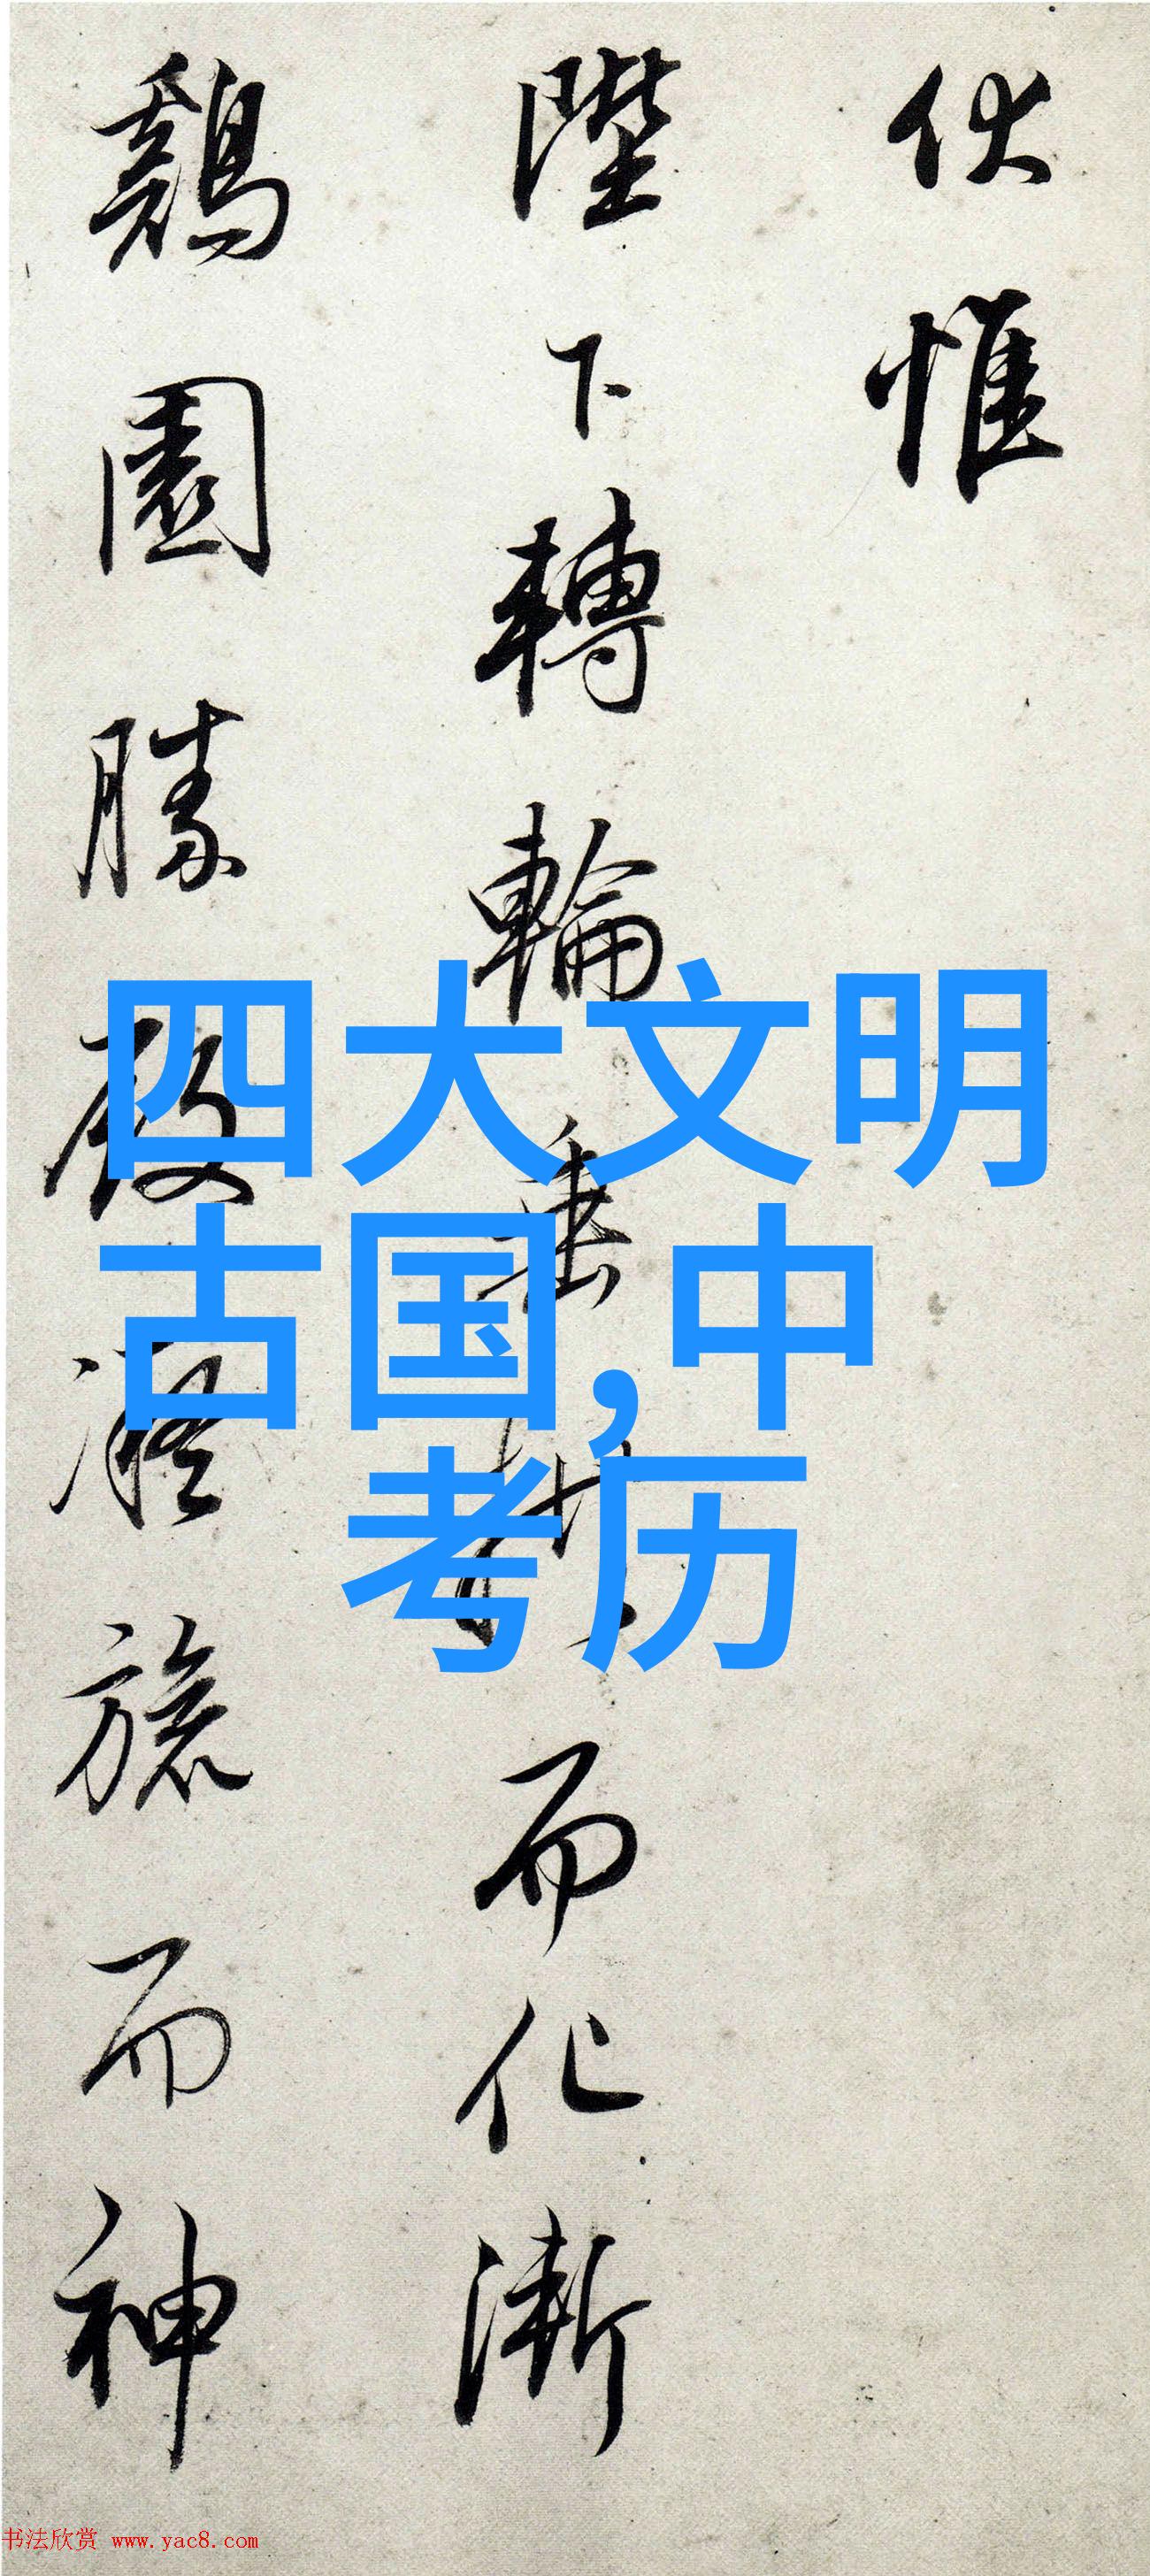 伏惟
陛下轉輪垂拱而化漸
鷄園勝殿凝旒而神
四大文明
古国,中
考历
书法欣赏 www.yac8.com